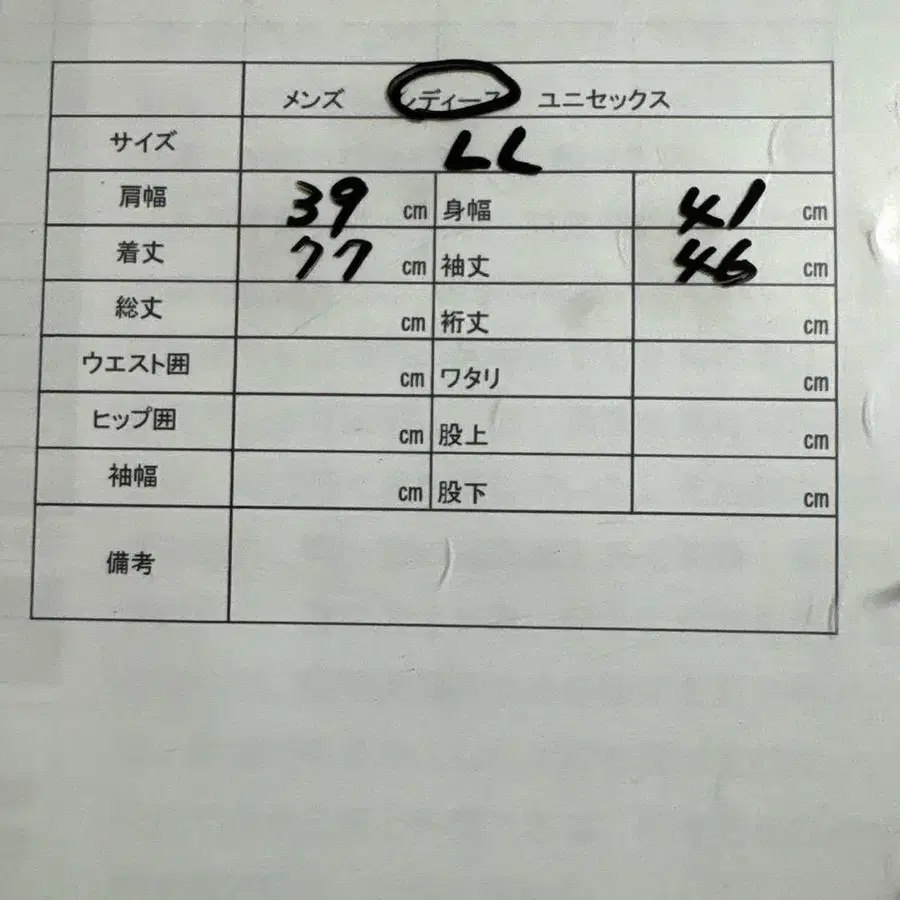 メンズ レディース ユニセックス
サイズ LL
肩幅 39 cm 身幅 41 cm
着丈 77 cm 袖丈 46 cm
総丈 cm 裄丈 cm
ウエスト囲 cm ワタリ cm
ヒップ囲 cm 股上 cm
袖幅 cm 股下 cm
備考